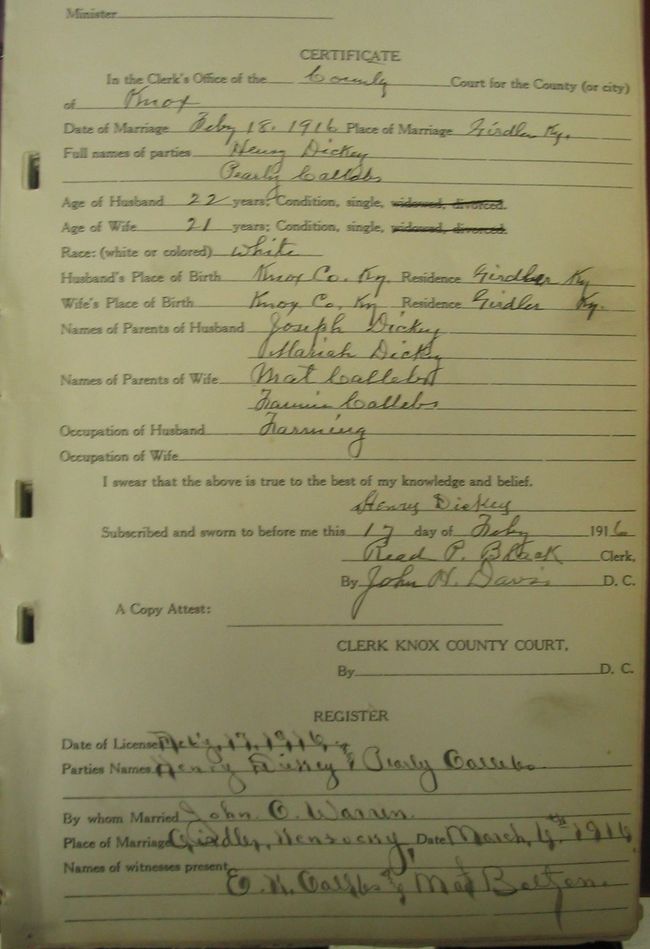 Minister
CERTIFICATE
In the Clerk's Office of the County Court for the County (or city)
of Knox
Date of Marriage Feby 18. 1916 Place of Marriage Girdler Ky.
Full names of parties Henry Dickey
Pearly Callebs
Age of Husband 22 years; Condition, single, widowed, divorced.
Age of Wife 21 years; Condition, single, widowed, divorced.
Race: (white or colored) White
Husband's Place of Birth Knox Co. Ky. Residence Girdler Ky
Wife's Place of Birth Knox Co. Ky Residence Girdler Ky.
Names of Parents of Husband Joseph Dickey
Mariah Dickey
Names of Parents of Wife Mat Callebs
Fannie Callebs
Occupation of Husband Farming
Occupation of Wife
I swear that the above is true to the best of my knowledge and belief.
Henry Dickey
Subscribed and sworn to before me this 17 day of Feby 1916
Read P. Black Clerk,
By John H. Davis D. C.
A Copy Attest:
CLERK KNOX COUNTY COURT,
By D. C.
REGISTER
Date of License Feb'y, 17, 1916,
Parties Names Henry & Pearly Callebs
By whom Married John. O. Warren.
Place of Marriage Girdler, Kentucky Date March, 4th 1916
Names of witnesses present
E. K. Callebs & Mat